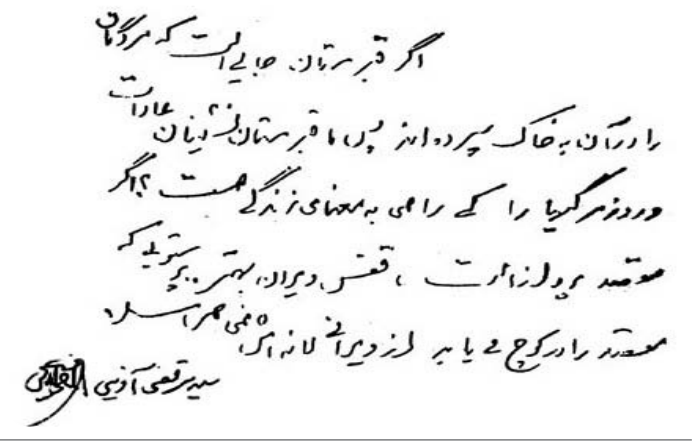 اگر قبرستان جایی است که مردگان
را در آن به خاک سپرده‌اند پس ما قبرستان نشینان عادات
و روزمرگیها را کی راهی به معنای زندگی هست؟ اگر
مقصد پرواز است، قفس ویران بهتر. پرستویی که
مقصد را در کوچ می‌یابد از ویرانی لانه‌اش نمی‌هراسد.
سید مرتضی آوینی